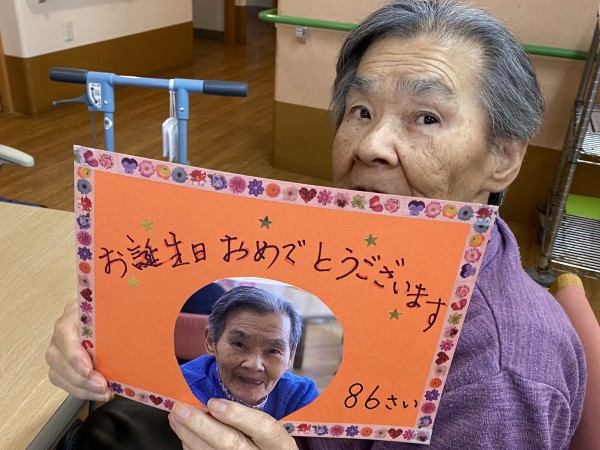 お誕生日おめでとうございます
86さい